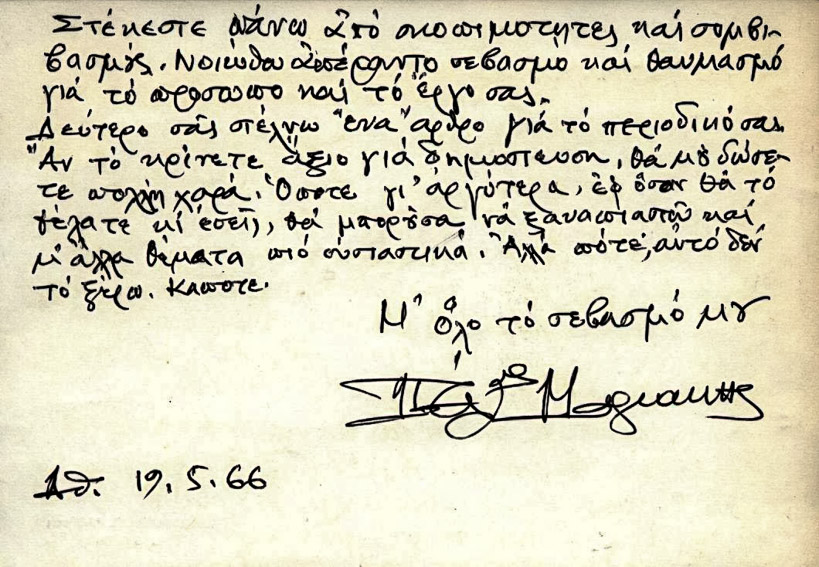 Στέκεστε πάνω ἀπό σκοπιμοτητες καί συμβι-
βασμούς. Νοιώθω ἀπέραντο σεβασμό καί θαυμασμό
γιά τό πρόσωπο καί τό ἔργο σας.
Δεύτερο σᾶς στέλνω ἕνα ἄρθρο γιά τό περιοδικό σας.
Ἄν τό κρίνετε ἄξιο γιά δημοσίευση, θά μοῦ δώσε-
τε πολλή χαρά. Ὁπότε γι' ἀργότερα, ἐφ' ὅσον θά τό
θέλατε κι' ἐσεῖς, θά μποροῦσα νά ξαναπιαστῶ καί
μ' ἄλλα θέματα πιό οὐσιαστικά. Ἀλλά πότε, αὐτό δέν
τό ξέρω. Κάποτε.
Μ' ὅλο τό σεβασμό μου
Ἀθ. 19.5.66